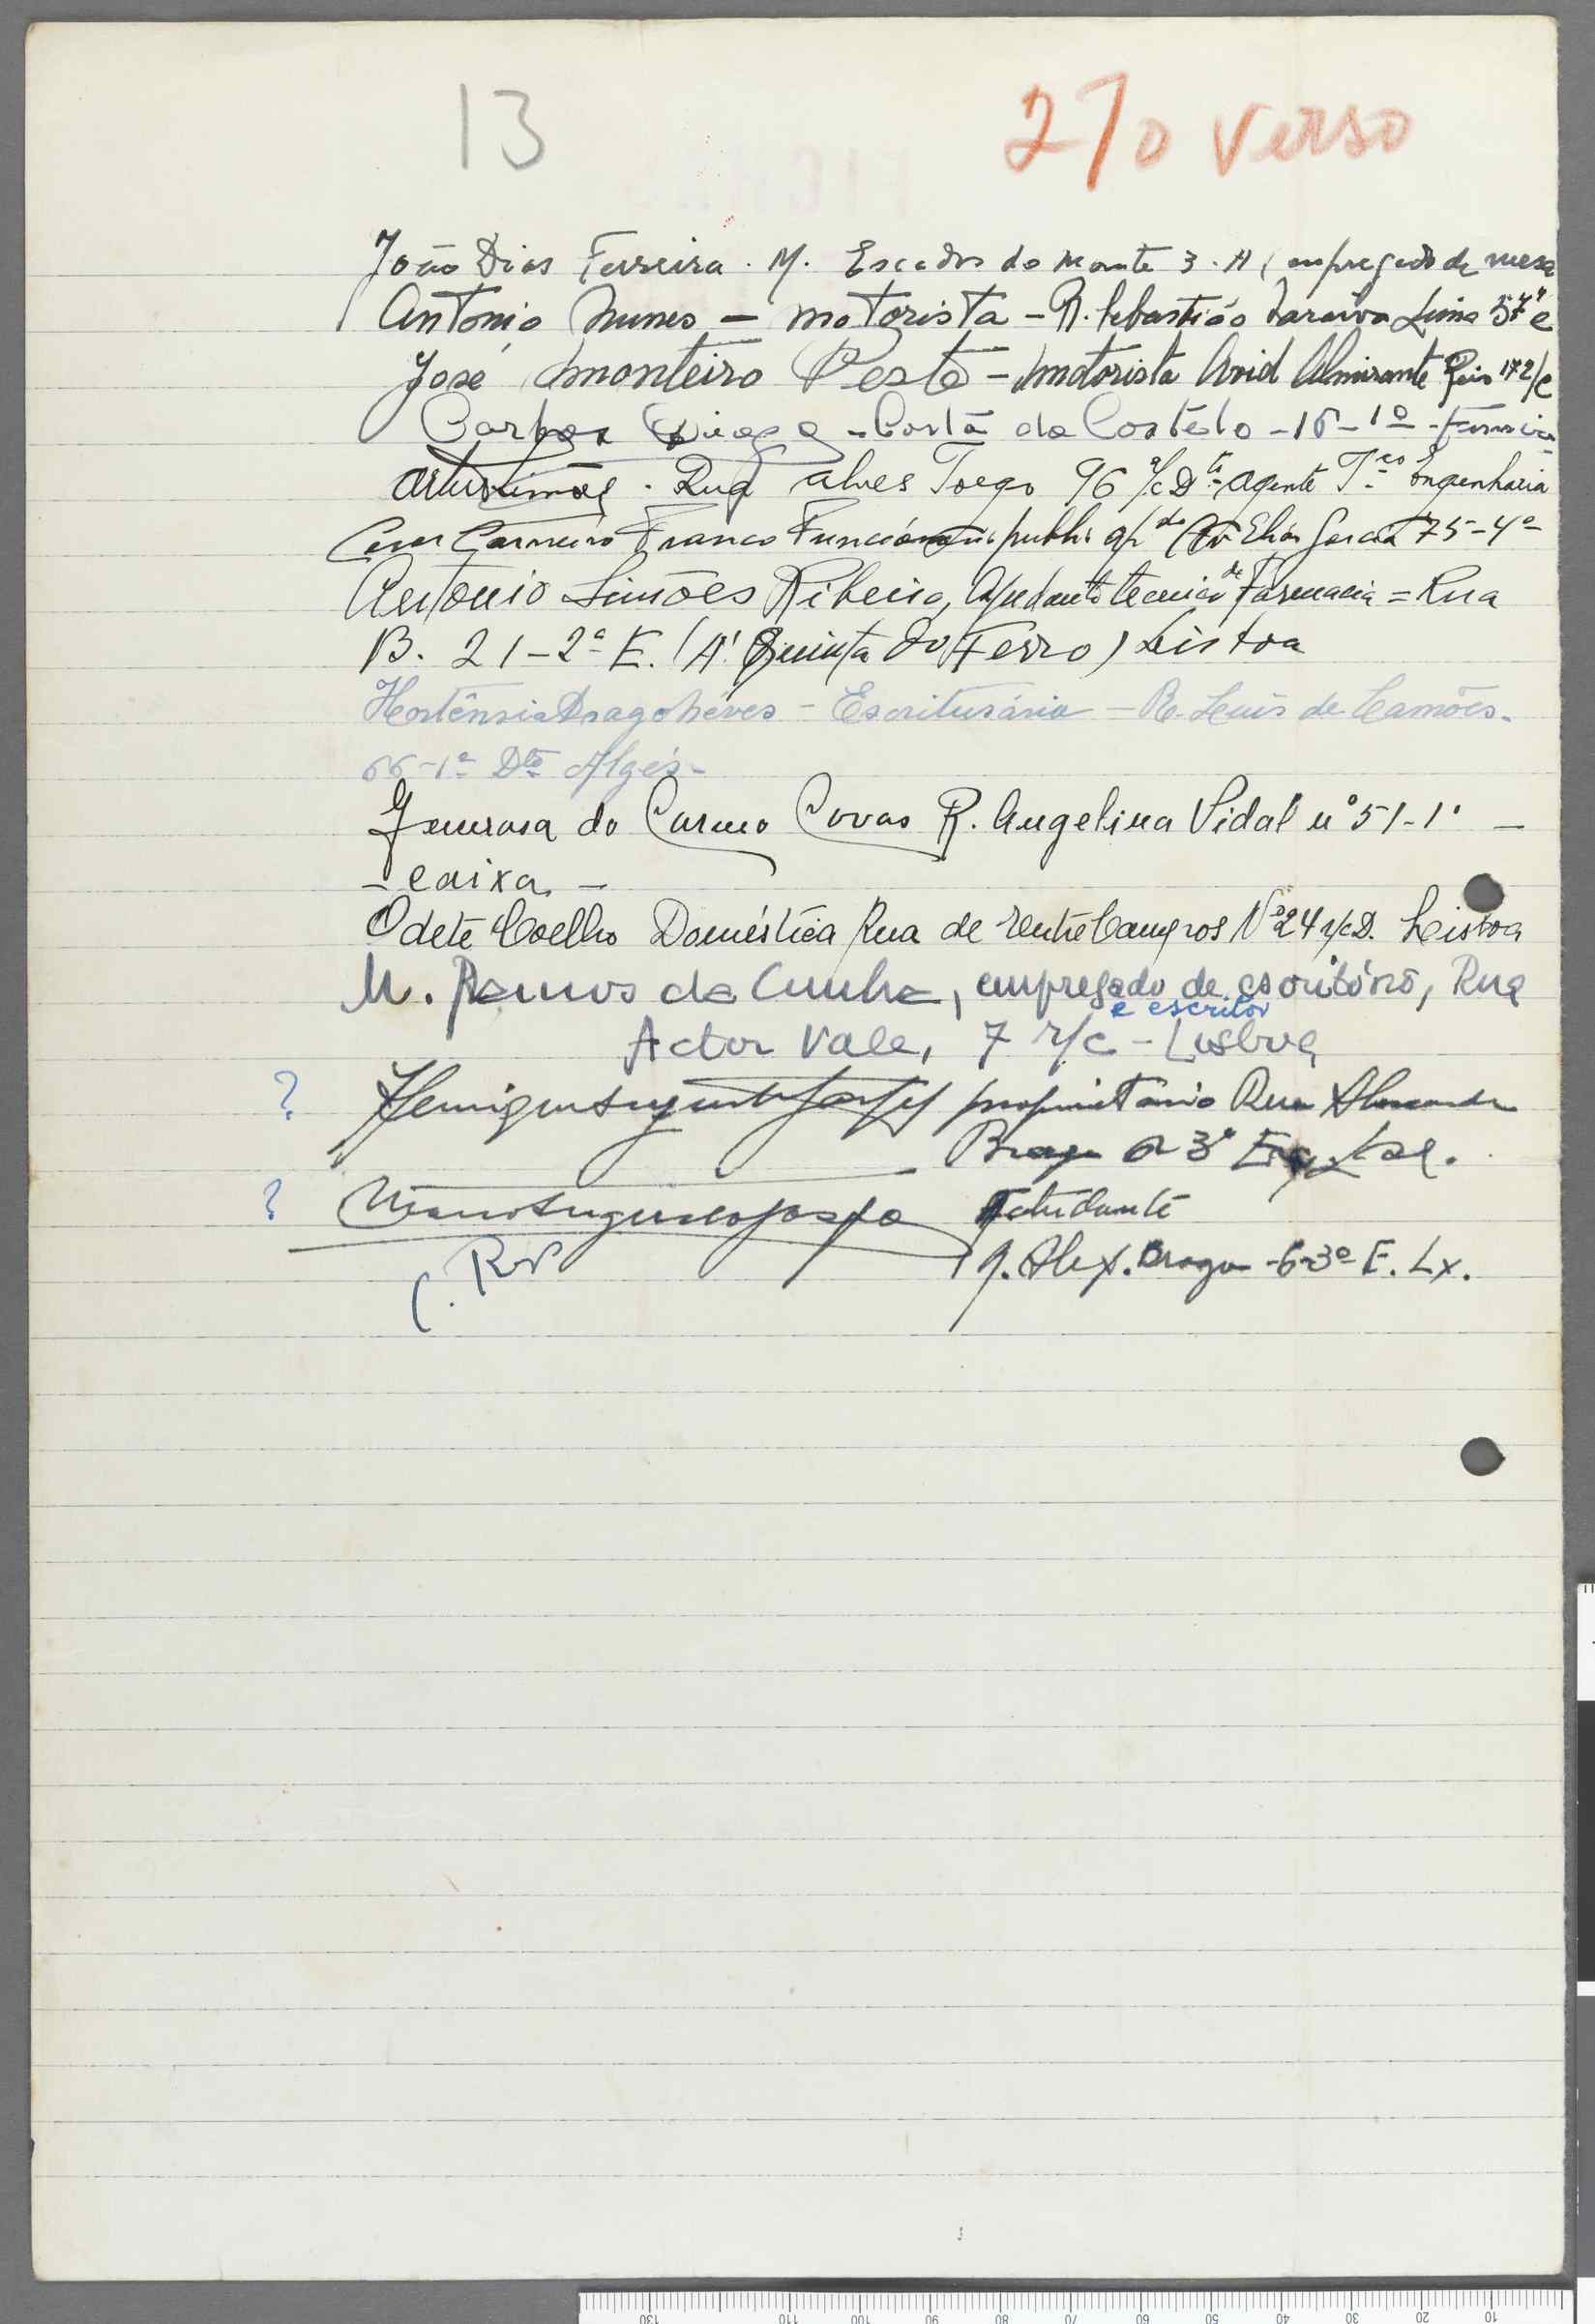 13
270 verso
João Dias Ferreira. M. Escadas do Monte 3. A (empregado de mesa
António Nunes - motorista - R. Sebastião Saraiva Lima 57
José Monteiro Peste - motorista Avid Almirante Reis 172 /c
Carlos - Costa do Castelo - 16-1º -
Artur Simões. Rua Alves Torgo 96 r/c Dtº Agente Tco Engenharia
Cesar Carneiro Franco publi Av Elias Garcia 75-4º
António Simões Ribeiro, Ajudante tecnico de Farmacia = Rua
B. 21-2º E. (A' Quinta do Ferro) Lisboa
Hortênsia Drago Neves - Escriturária - R. Luís de Camões-
66-1º Dtº Algés-
Generosa do Carmo Covas R. Angelina Vidal nº 51-1º -
- caixa -
Odete Coelho Doméstica Rua de Entre Campos Nº 24 r/c D. Lisboa
M. Ramos da Cunha, empregado de escritório, Rua
e escritor
Actor Vale, 7 r/c - Lisboa
? proprietário Rua Alexandre
Braga 6 3º Esq. Lx.
? Estudante
R. Alex. Braga -6-3º E. Lx.